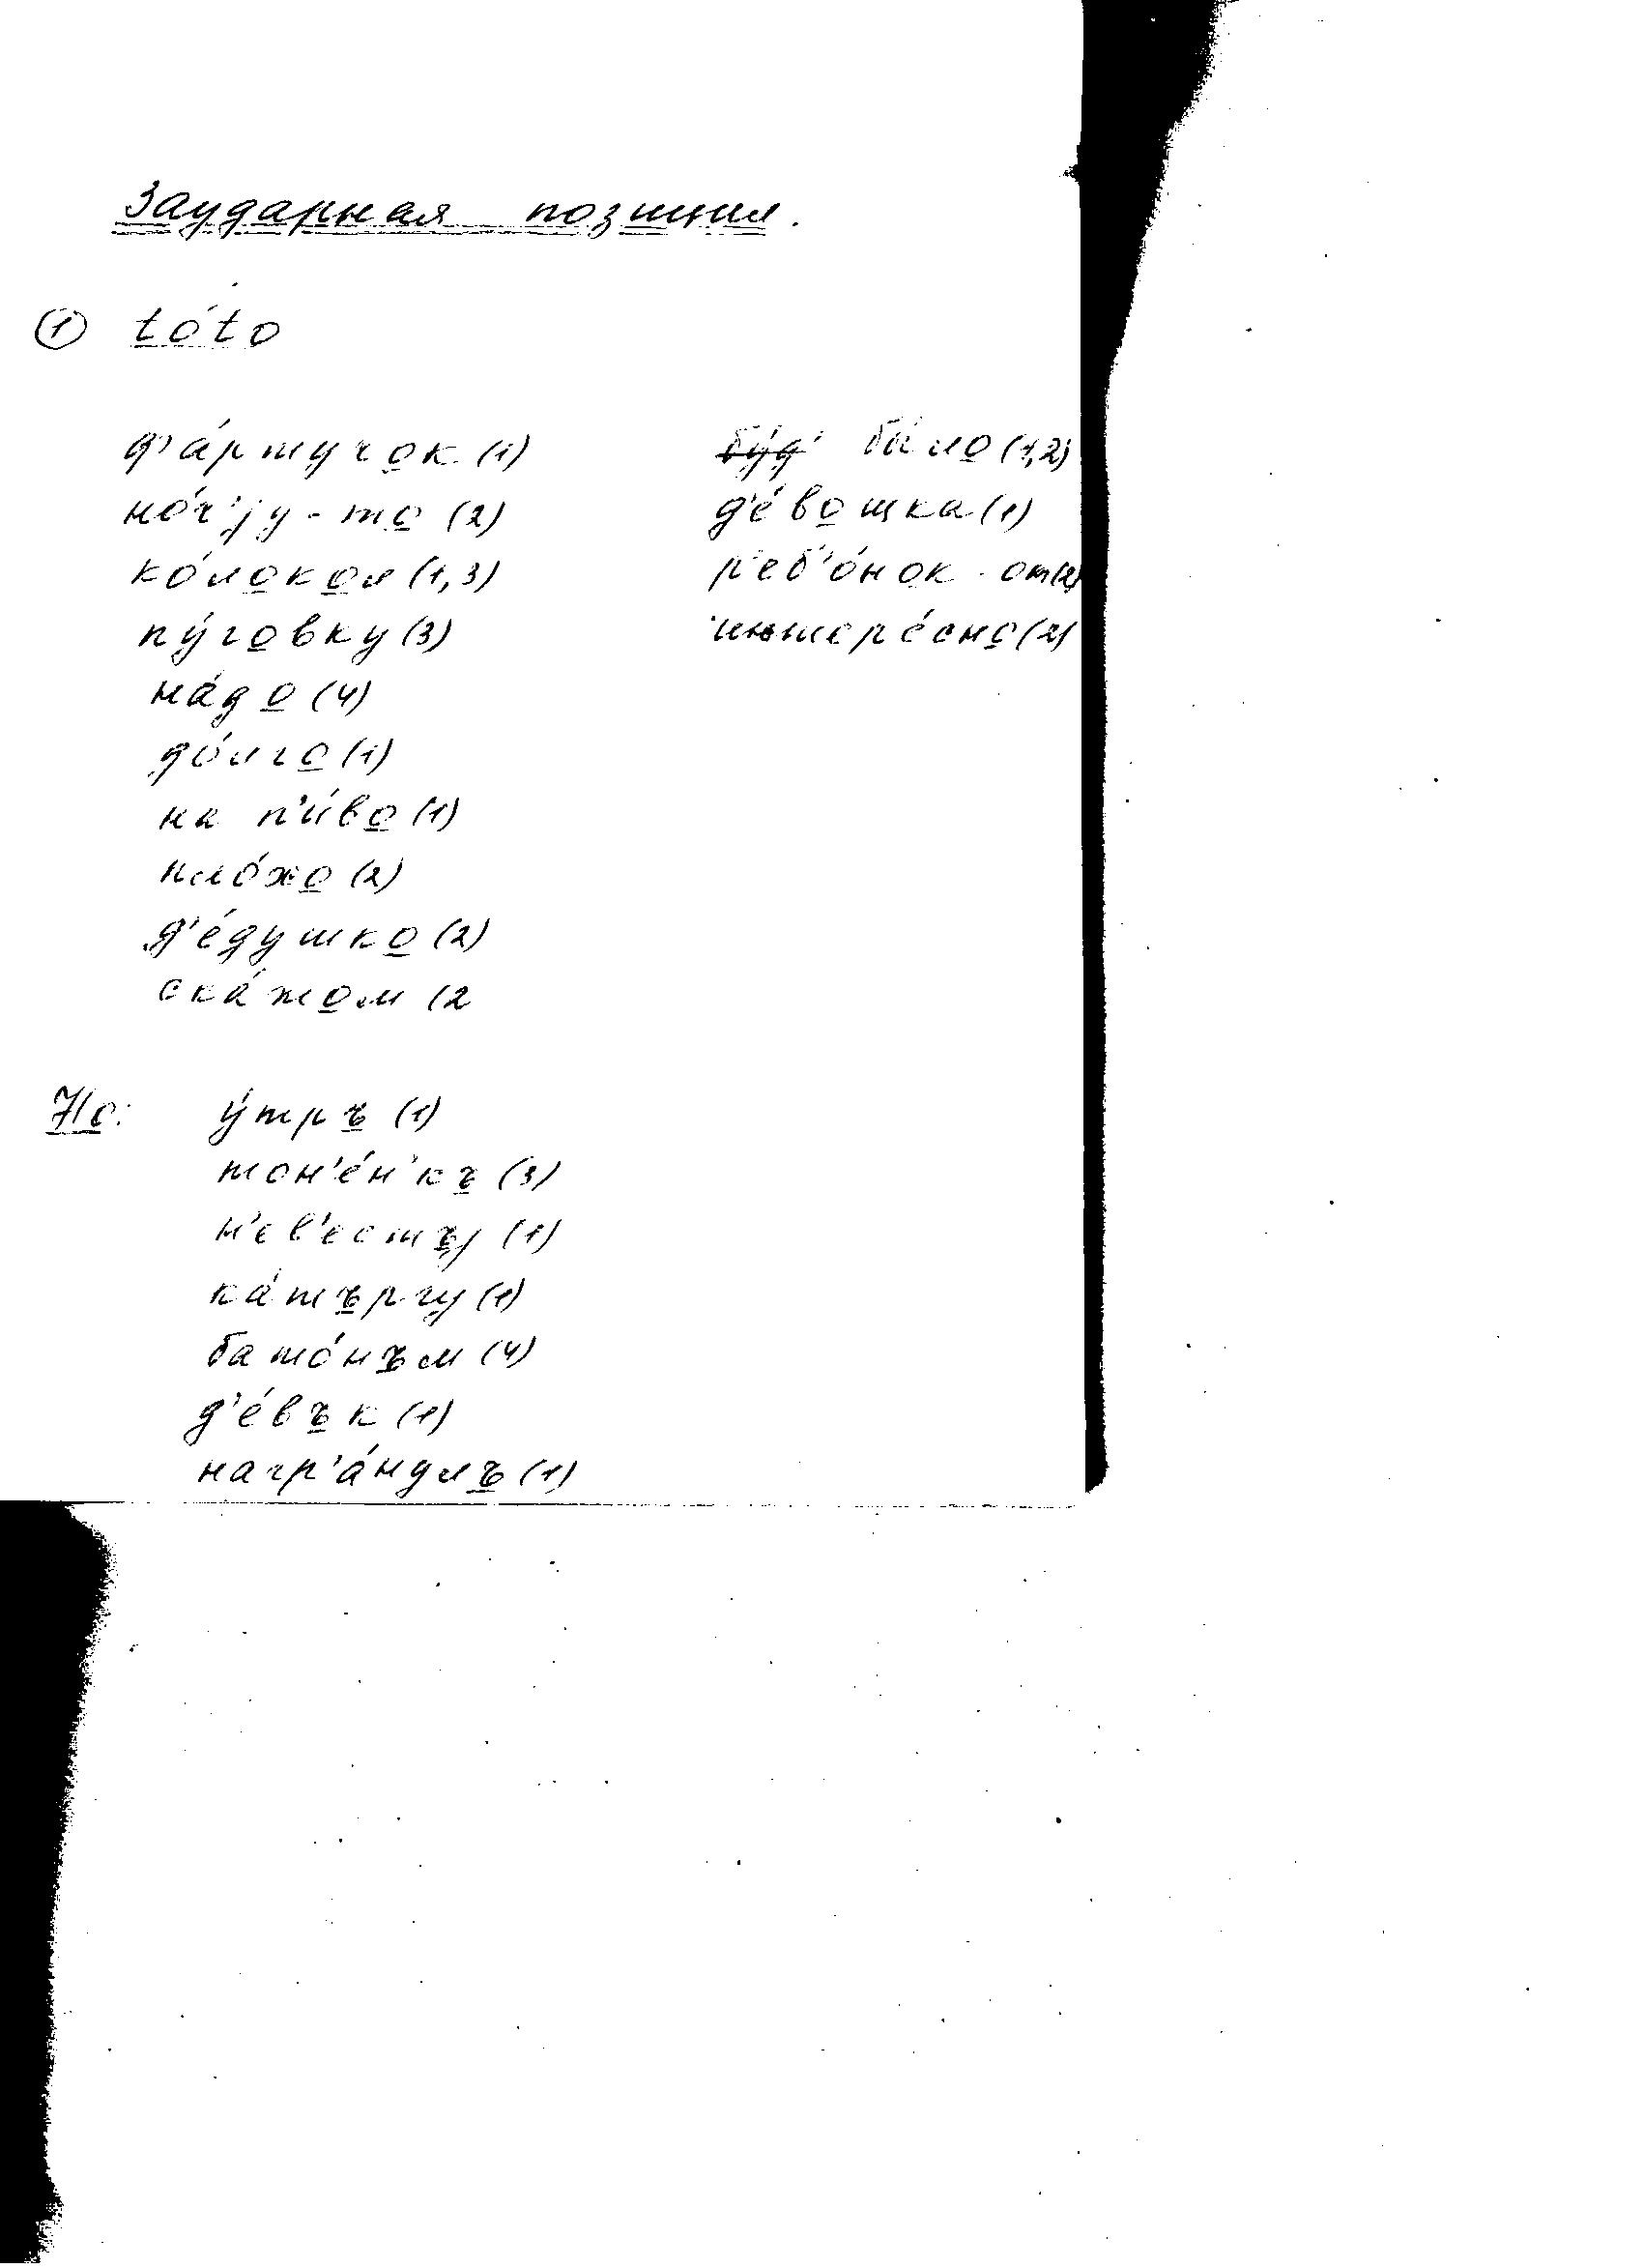 Заударная позиция.
① tóto
фа́ртучок (1)
но́ч'jу-то (2)
ко́локол (1,3)
пу́говку (3)
на́до (4)
до́лго (1)
на п'и́во (1)
пло́хо (2)
д'е́душко (2)
ска́жом (2
бу́д' бы́ло (1,2)
д'е́вошка (1)
р'еб'о́нок-от (2)
интере́сно (2)
Но: у́тръ (1)
тон'е́н'къ (3)
н'ев'естъj (1)
ка́търгу (1)
бато́нъм (4)
д'е́вък (1)
нагр'а́ндлъ (1)